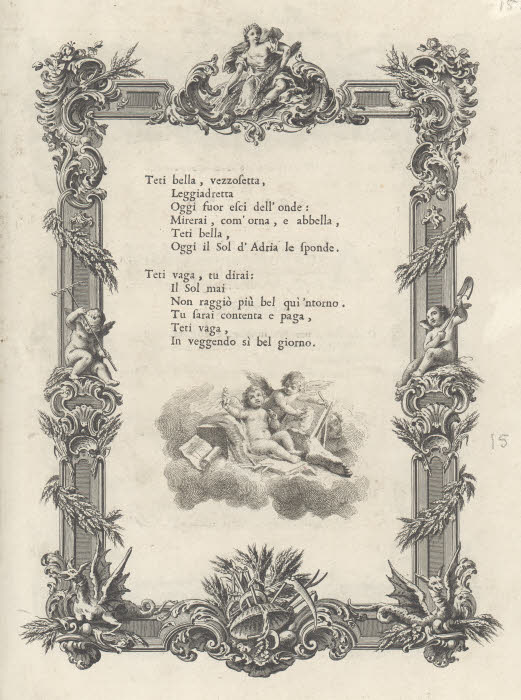 15
Teti bella, vezzoſetta,
Leggiadretta
Oggi fuor eſci dell' onde:
Mirerai, com' orna, e abbella,
Teti bella,
Oggi il Sol d' Adria le ſponde.
Teti vaga, tu dirai:
Il Sol mai
Non raggiò più bel quì 'ntorno.
Tu ſarai contenta e paga,
Teti vaga,
In veggendo sì bel giorno.
15